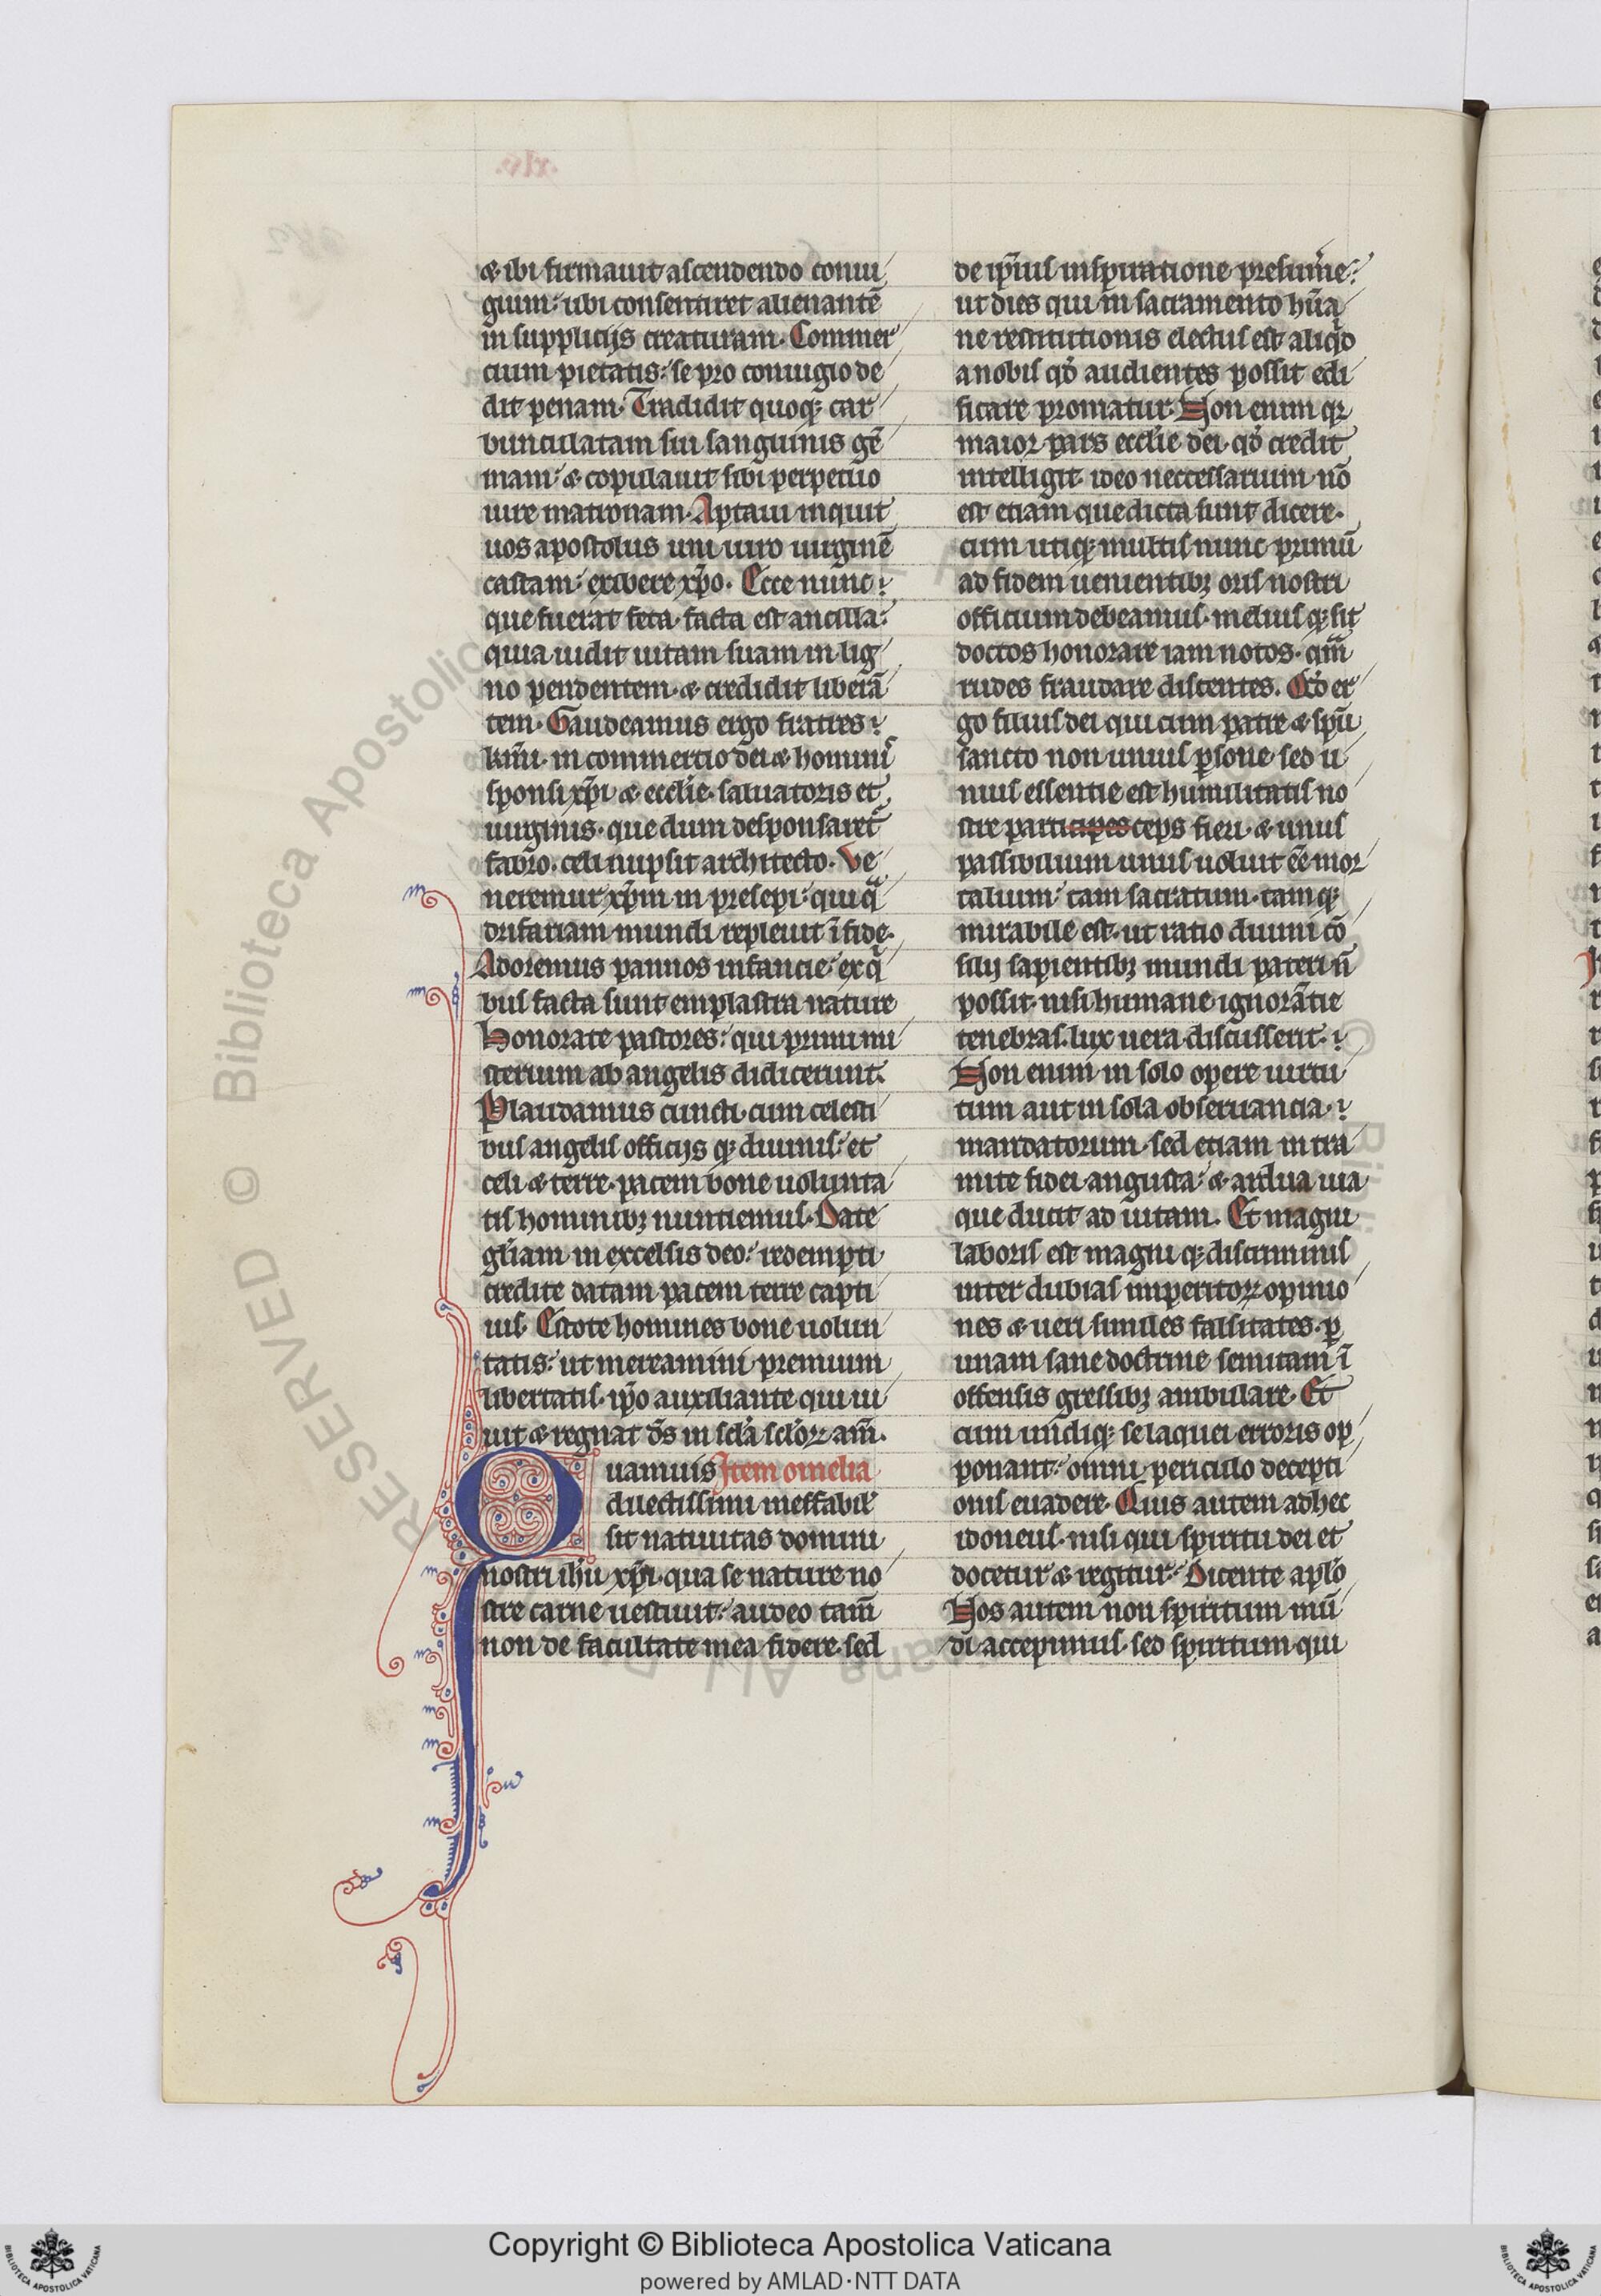 & ibi firmauit ascendendo coniu
gium: ubi consentiret alienantē
in supplicijs creaturam. Commer
cium pietatis: se pro coniugio de
dit penam. Tradidit quoq; car
bunculatam sui sanguinis gē
mam: & copulauit sibi perpetuo
iure matronam. Aptaui inquit
uos apostolus uni uiro uirginē
castam: exibere xp̄o. Ecce nunc:
que fuerat feta. facta est ancilla:
quia uidit uitam suam in lig
no pendentem. & credidit liberā
tem. Gaudeamus ergo fratres:
km̄i. in commertio dei & hominis
sponsi xp̄i & eccl̄ie. saluatoris et
uirginis. que dum desponsaret᷑
fabro. celi nupsit architecto. Ve
neremur xp̄m in presepi: qui q͛
drifariam mundi repleuit ī fide.
Adoremus pannos infancie: ex qͥ
bus facta sunt emplastra nature
Honorate pastores: qui primi mi
sterium ab angelis didicerunt.
Plaudamus cuncti. cum celesti
bus angelis officijs q; diuinis: et
celi & terre. pacem bone uolunta
tis hominibꝫ nuntiemus. Date
gl̄iam in excelsis deo: redempti
credite datam pacem terre capti
ui. Estote homines bone uolun
tatis: ut mereamini premium
libertatis. ip̄o auxiliante qui ui
uit & regnat d̄s in scl̄a scl̄oꝝ am̄.
Quamuis Item omelia
dilectissimi ineffabil'
sit natiuitas domini
nostri ih̄u xp̄i. qua se nature no
stre carne uestiuit: audeo tam̄
non de facultate mea fidere. sed
de ip̄ius inspiratione presum̄e:
ut dies qui in sacramento hūa
ne restitutionis electus est aliqͥd
a nobis qd̓ audientes possit edi
ficare promatur. Non enim qꝛ
maior pars eccl̄ie dei. qd̓ credit
intelligit. ideo neccessarium. nō
est etiam que dicta sunt dicere.
cum utiq; multis nunc primū
ad fidem uenientibꝫ oris nostri
officium debeamus. melius q; sit
doctos honorare iam notos. qm̄
rudes fraudare discentes. Qd̓ er
go filius dei qui cum patre & sp̄u
sancto non unius ꝑsone. sed u
nius essentie est humilitatis no
stre participes ceps fieri. & unus
passibilium unus uoluit ēē mor
talium: tam sacratum. tam q;
mirabile est. ut ratio diuini cō
silij sapientibꝫ mundi pateri n̄
possit. nisi humane ignorātie
tenebras. lux uera discusserit.:
Non enim in solo opere uirtu
tum aut in sola obseruancia.:
mandatorum. sed etiam in tra
mite fidei angusta: & ardua uia
que ducit ad uitam. Et magni
laboris est magni q; discriminis
inter dubias imperitoꝝ opinio
nes & ueri similes falsitates. ꝑ
unam sane doctrine semitam ī
offensis gressibꝫ ambulare. Et
cum undiq; se laquei erroris op
ponant: omni periculo decepti
onis euadere. Quis autem ad hec
idoneus. nisi qui spiritu dei et
docetur & regitur: Dicente apl̄o
Nos autem non spiritum mū
di accepimus. sed spiritum qui
Copyright © Biblioteca Apostolica Vaticana
powered by AMLAD·NTT DATA